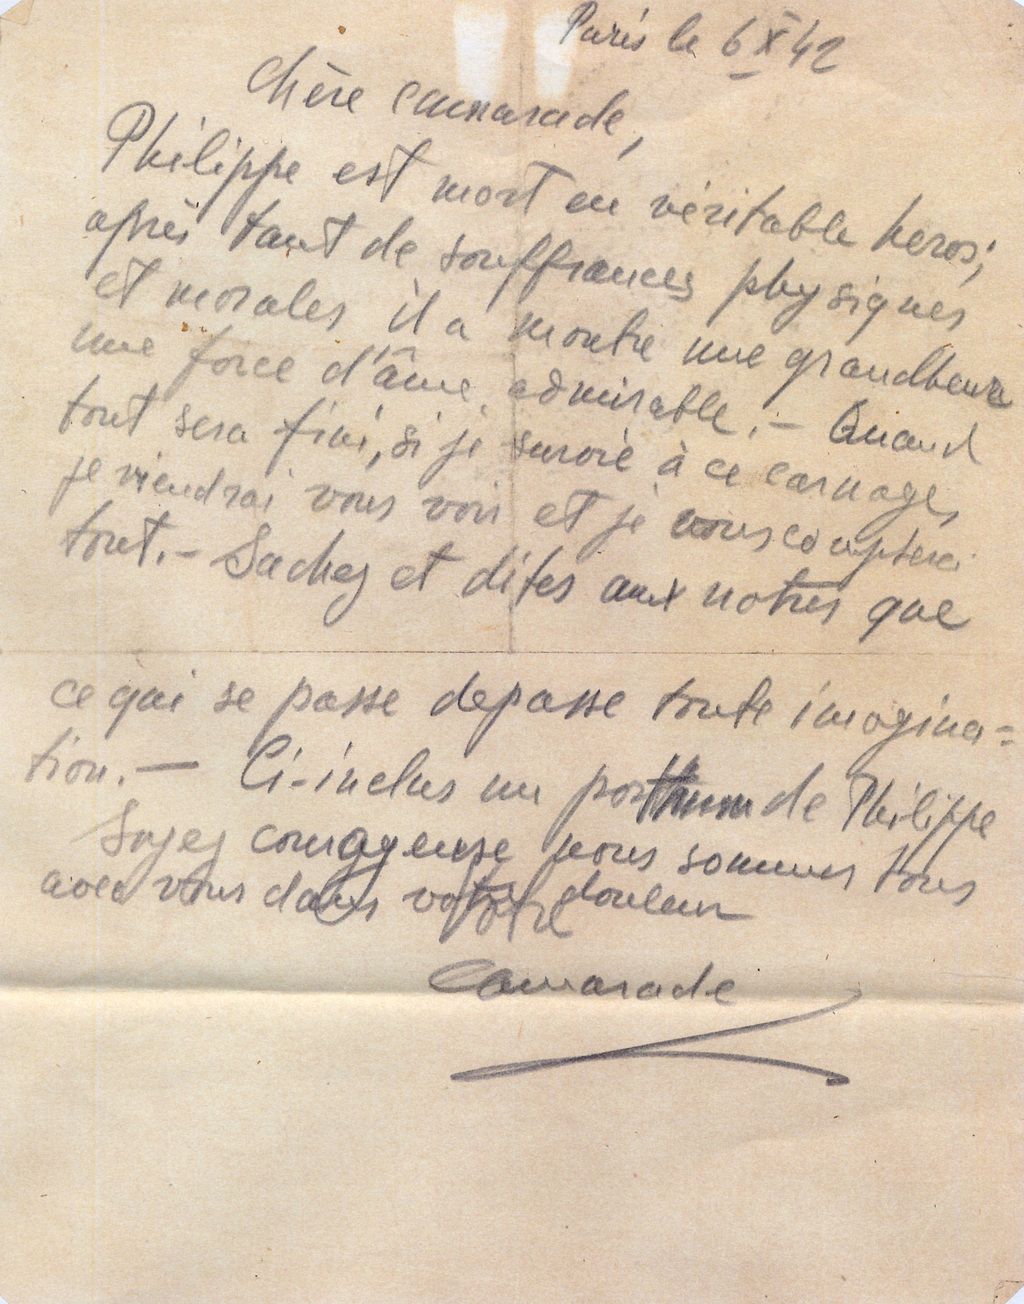 Paris le 6 X 42
Chère camarade,
Philippe est mort en véritable heros;
après tant de souffrances physiques
et morales il a montre une grandheur
une force d'âme admirable. — Quand
tout sera fini, si je survie à ce carnage,
je viendrai vous voir et je vous compterai
tout. — Sachez et dites aux notres que
ce qui se passe depasse toute imagina=
tion. — Ci-inclus un de Philippe
Soyez courageuse nous sommes tous
avec vous dans votre douleur
Camarade